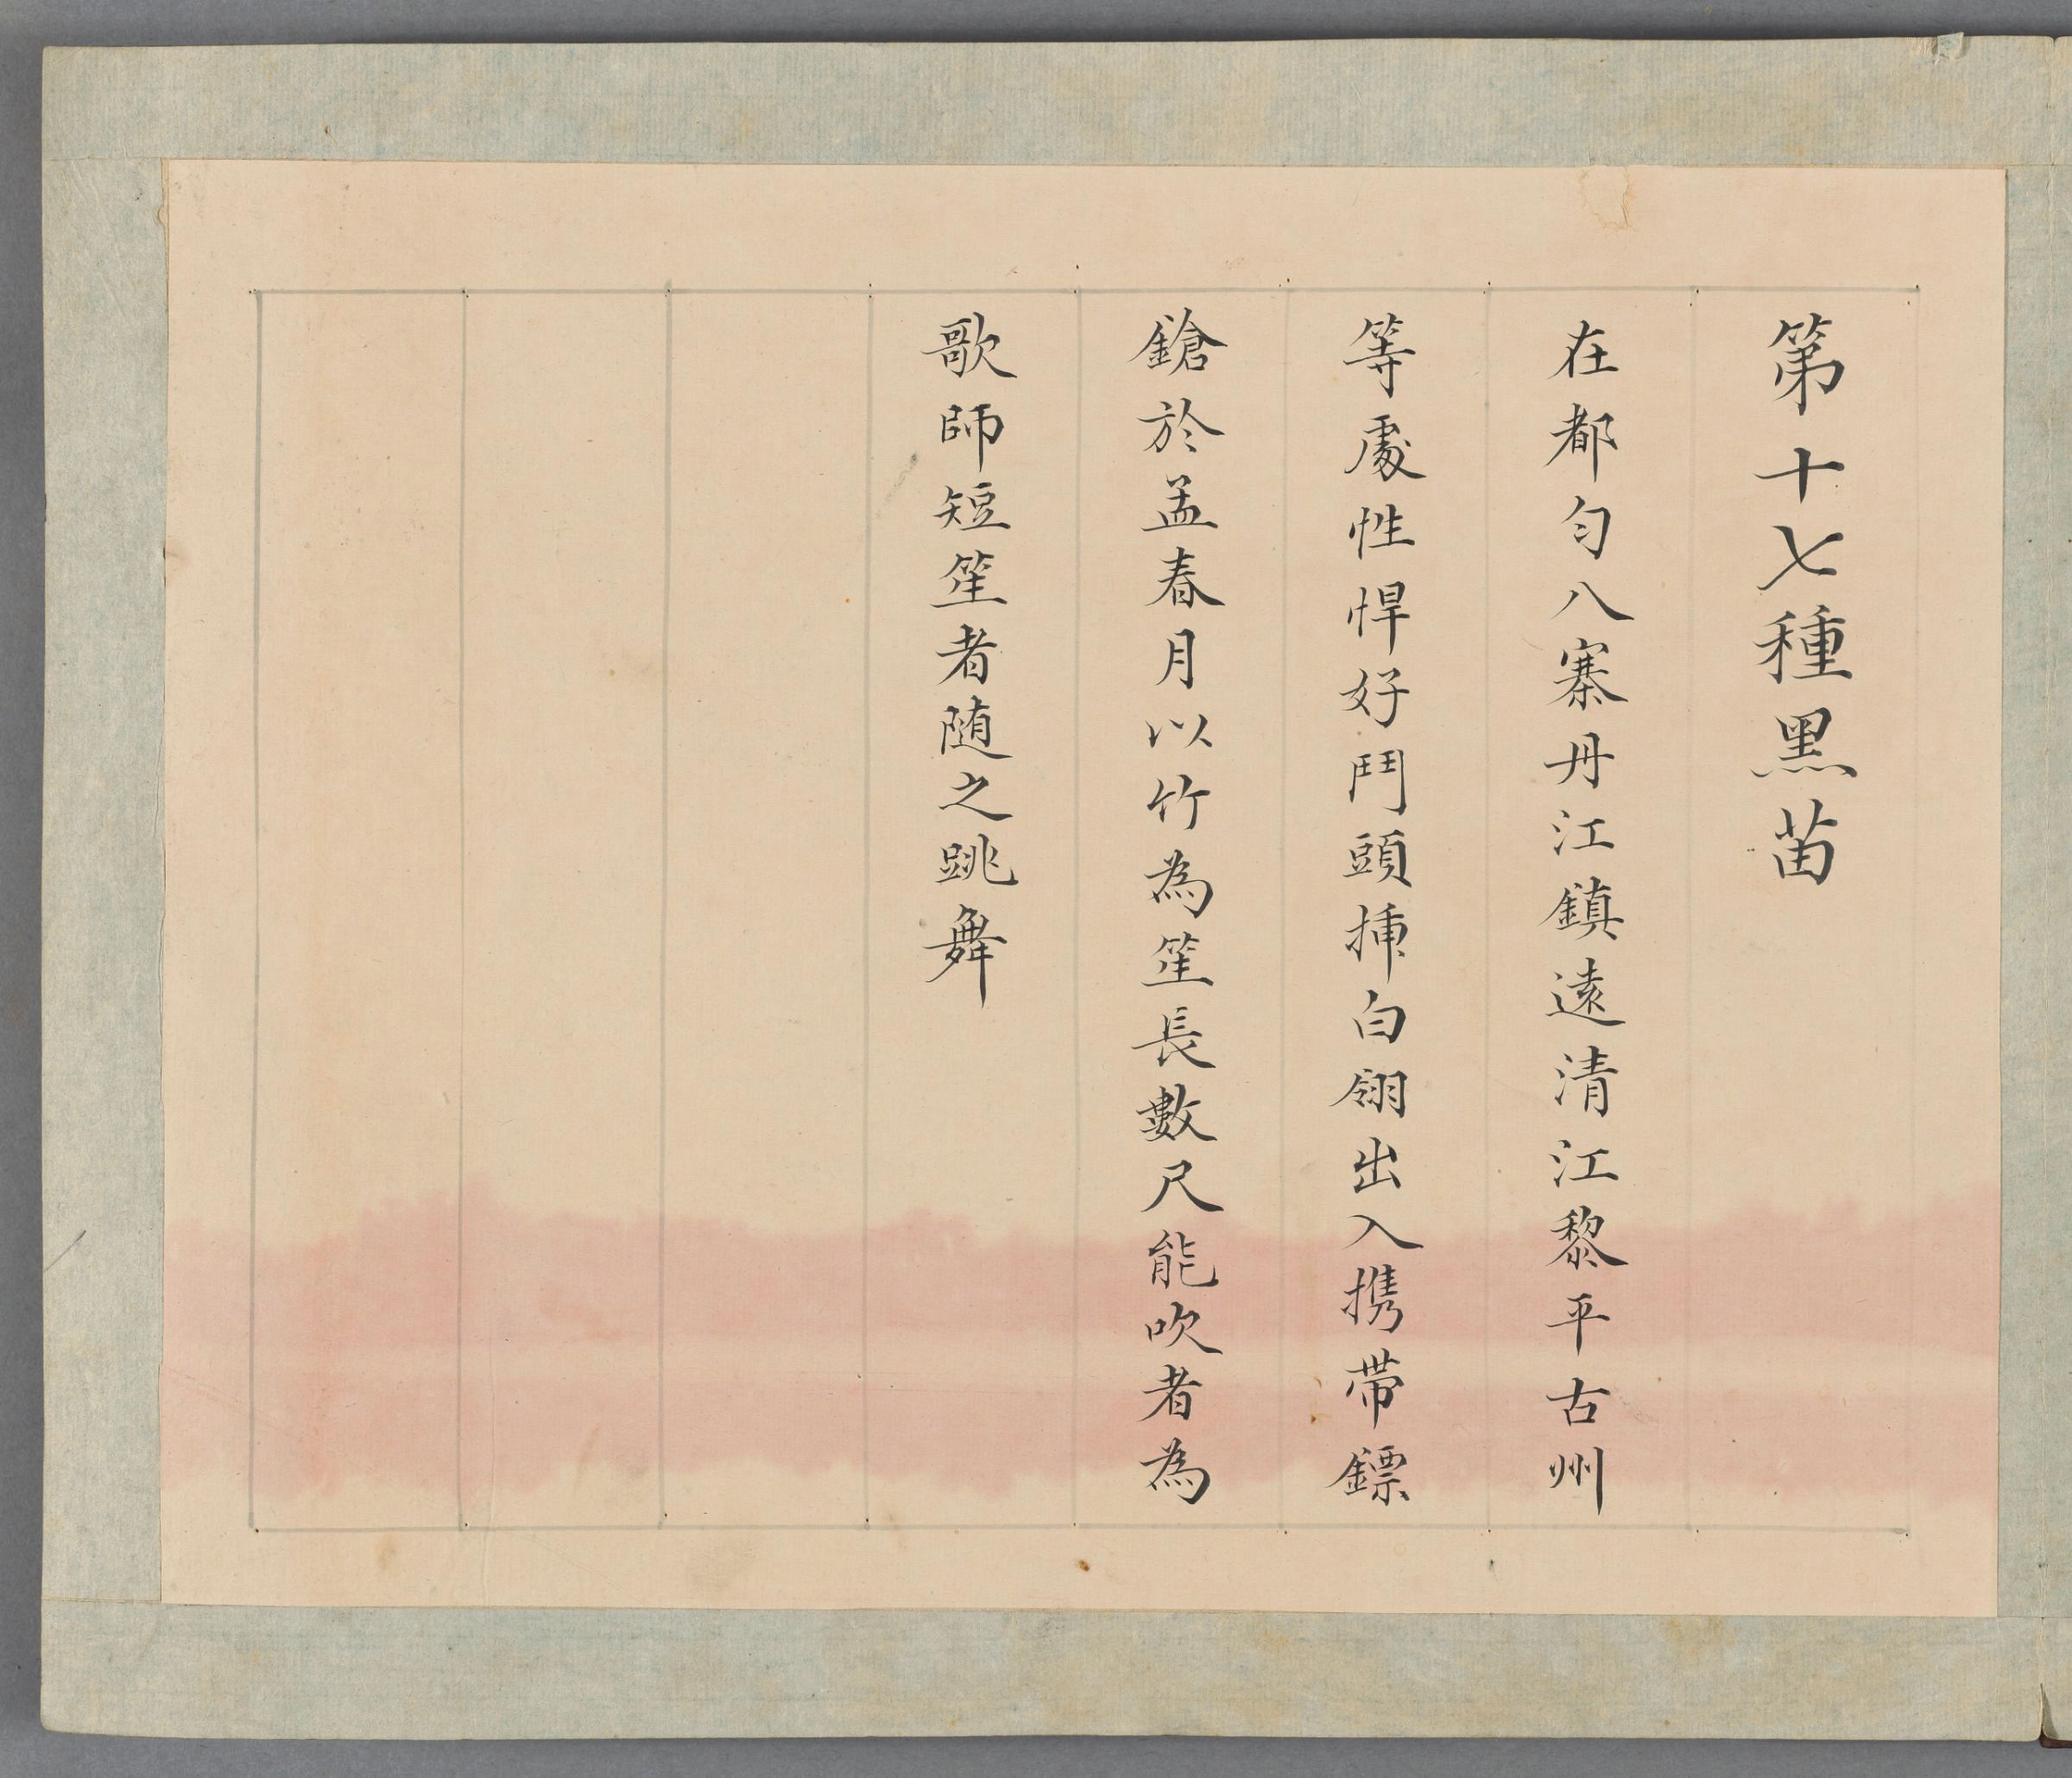 第十七種黑苗
在都匀八寨丹江鎮遠清江黎平古州
等處性悍好鬥頭揷白翎出入携帶鏢
鎗於孟春月以竹為笙長數尺能吹者為
歌師短笙者随之跳舞